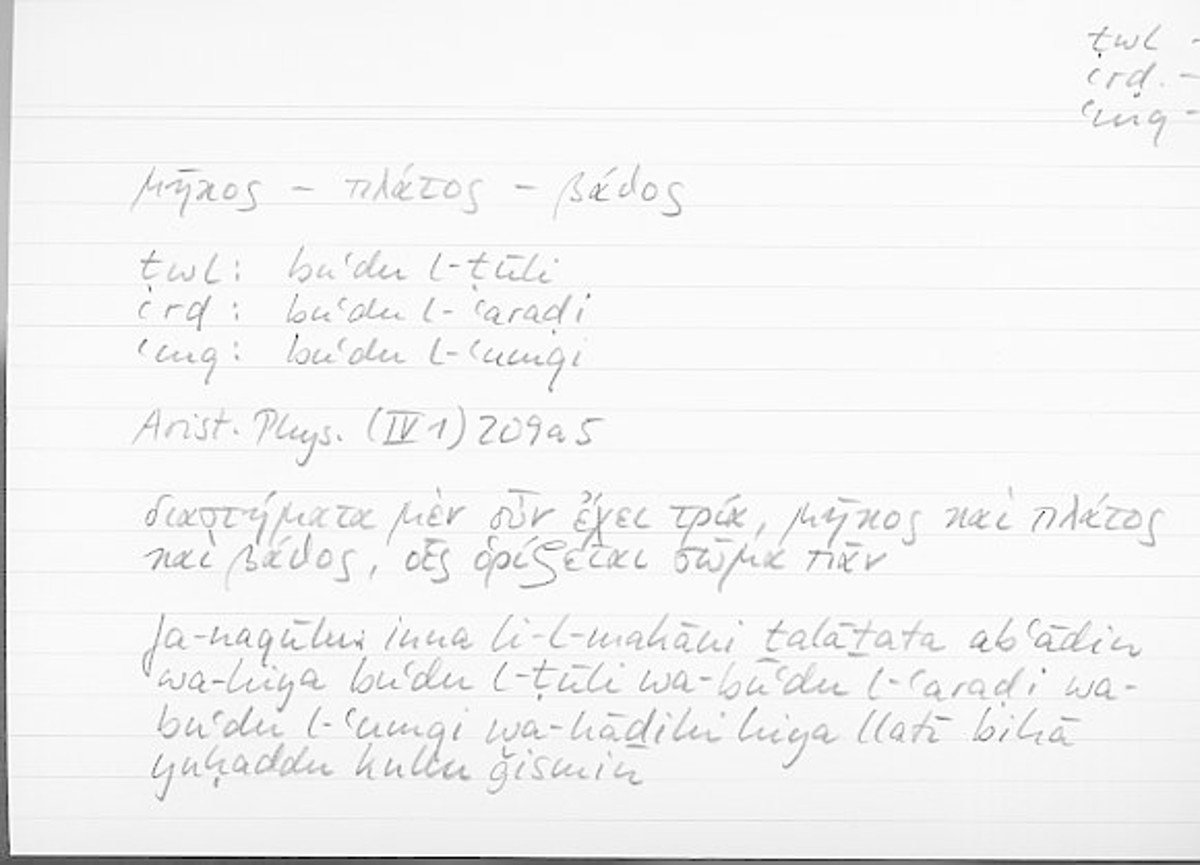 ṭwl -
ʿrḍ. -
ʿmq -
μῆκος - πλάτος - βάθος
ṭwl: buʿdu l-ṭūli
ʿrḍ: buʿdu l-ʿaraḍi
ʿmq: buʿdu l-ʿumqi
Arist. Phys. (IV 1) 209a5
διαστήματα μὲν οὖν ἔχει τρία, μῆκος καὶ πλάτος
καὶ βάθος, οἷς ὁρίζεται σῶμα πᾶν
fa-naqūlu: inna li-l-makāni ṯalāṯata abʿādin
wa-hiya buʿdu l-ṭūli wa-buʿdu l-ʿaraḍi wa-
buʿdu l-ʿumqi wa-hāḏihi hiya llatī bihā
yuḥaddu kullu ǧismin